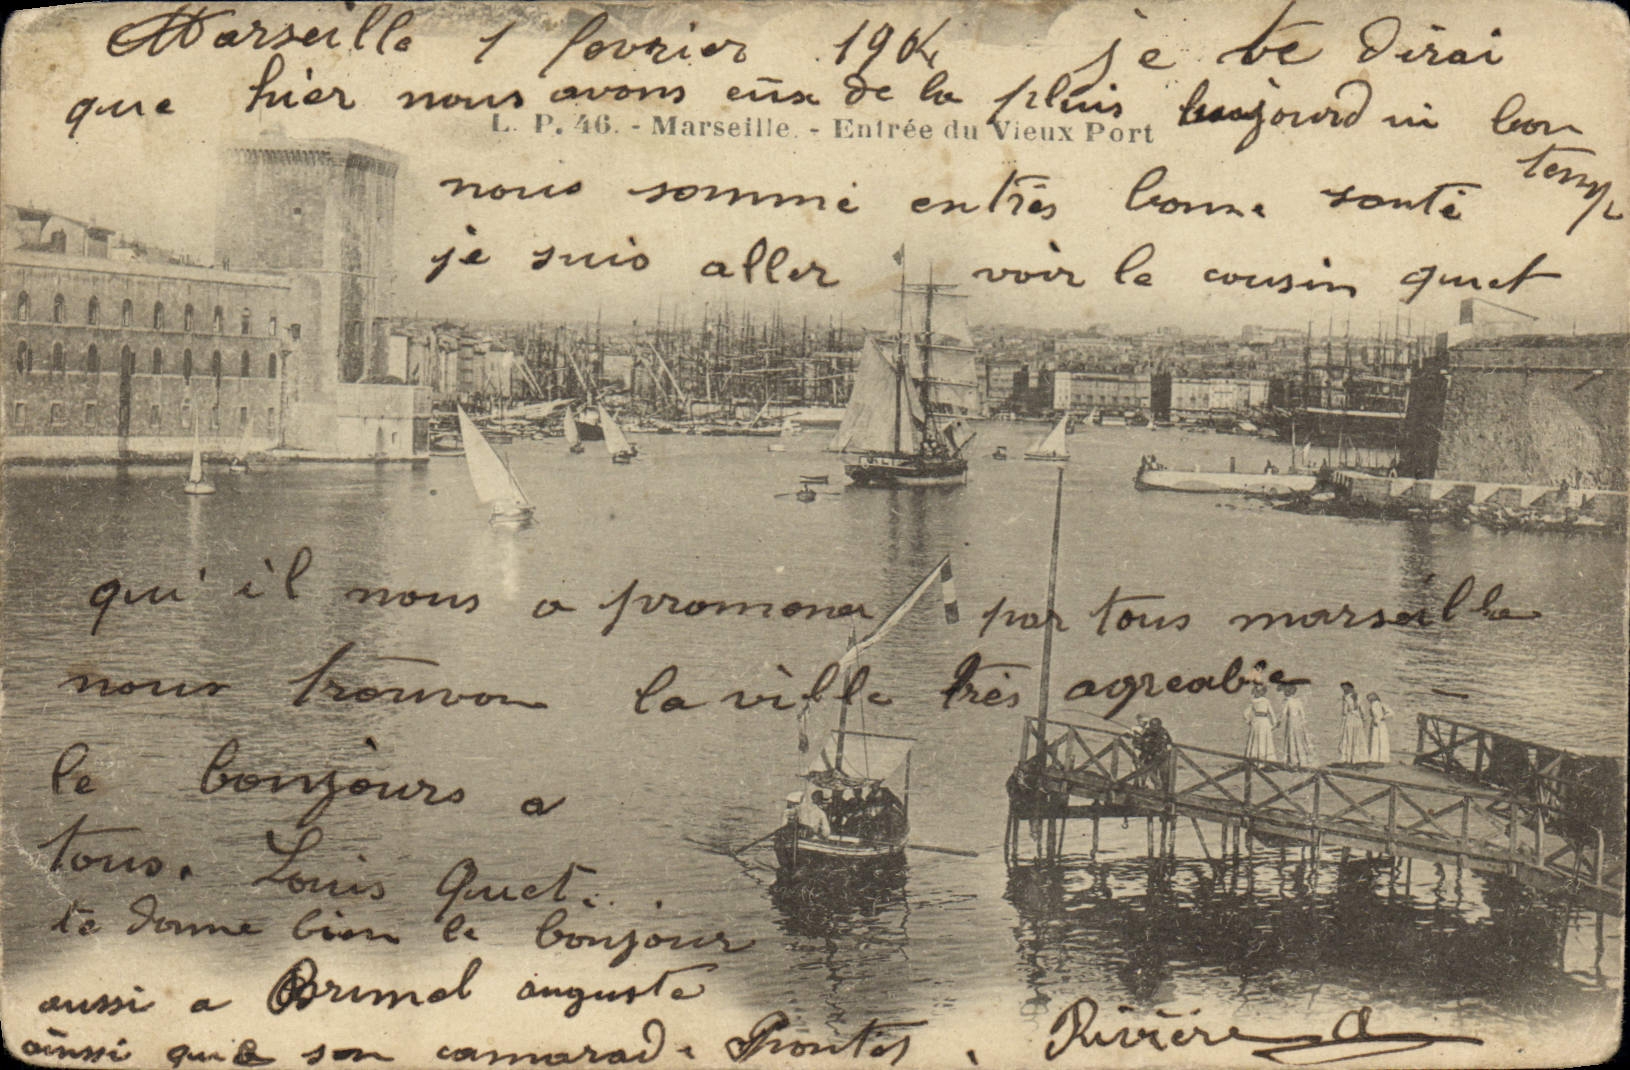 Marseille 1 fevrier 1904 je te dirai
que hier nous avons eüx de la pluis aujourd ui bon
temp
L. P. 46. - Marseille. - Entrée du Vieux Port
nous somme en très bonne santé
je suis aller voir le cousin quet
qui il nous a promener par tous marseille
nous trouvon la ville très agreable
le bonjours a
tous. Louis Quet.
te donne bien le bonjour
aussi a Brunel auguste
ainsi que son camarade
Rivière A